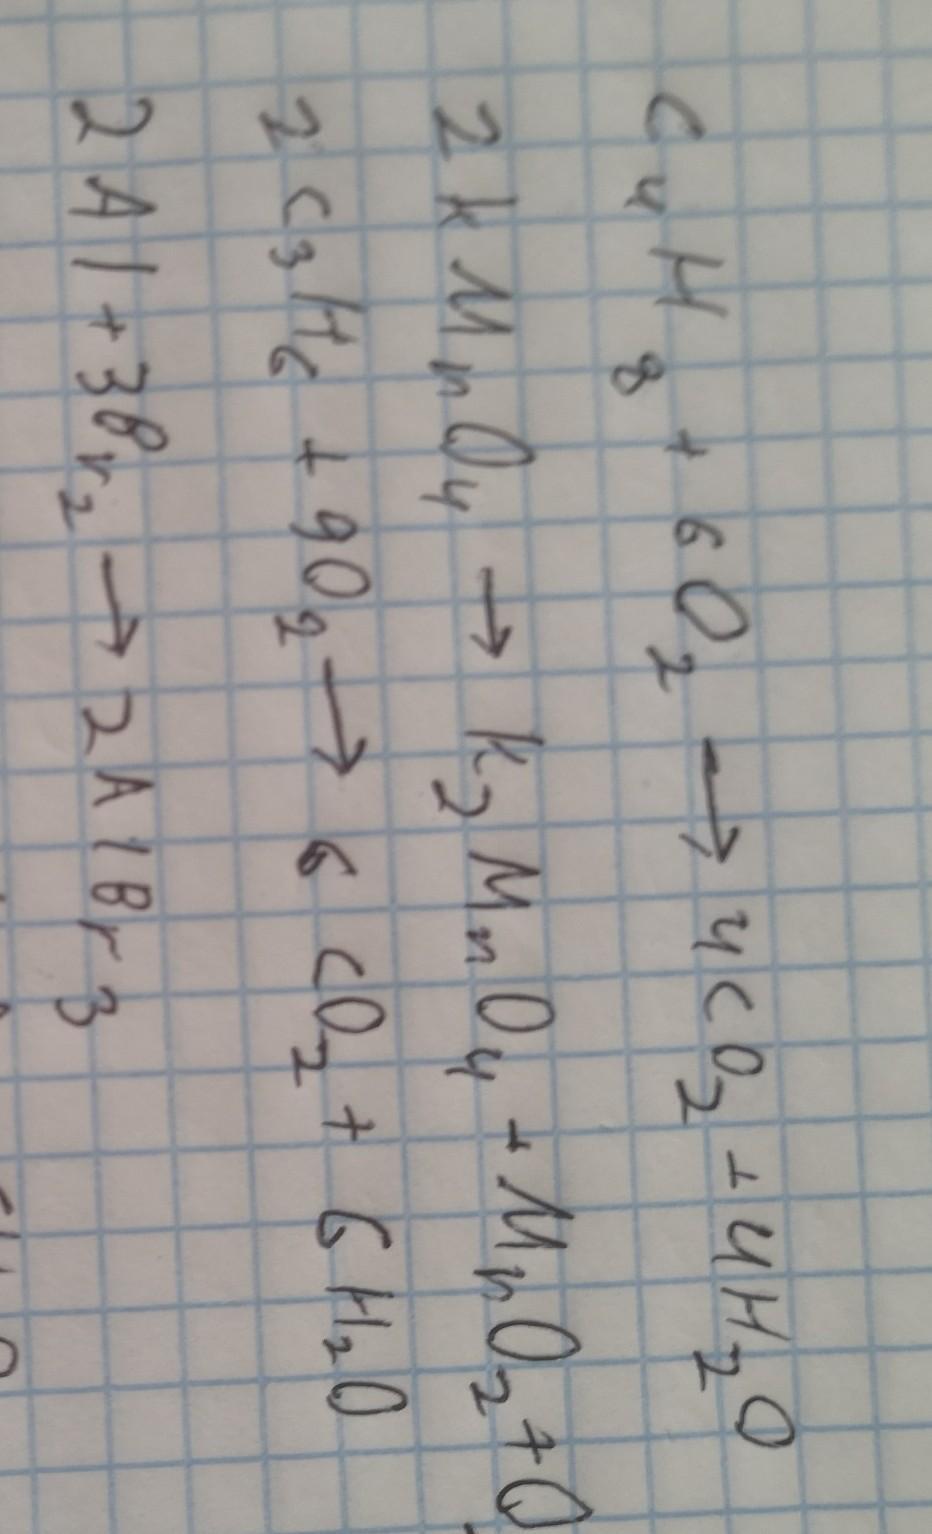 C₄H₈ + 6O₂ → 4CO₂ + 4H₂O
2KMnO₄ → K₂MnO₄ + MnO₂ + O
2C₃H₆ + 9O₂ → 6CO₂ + 6H₂O
2Al + 3Br₂ → 2AlBr₃